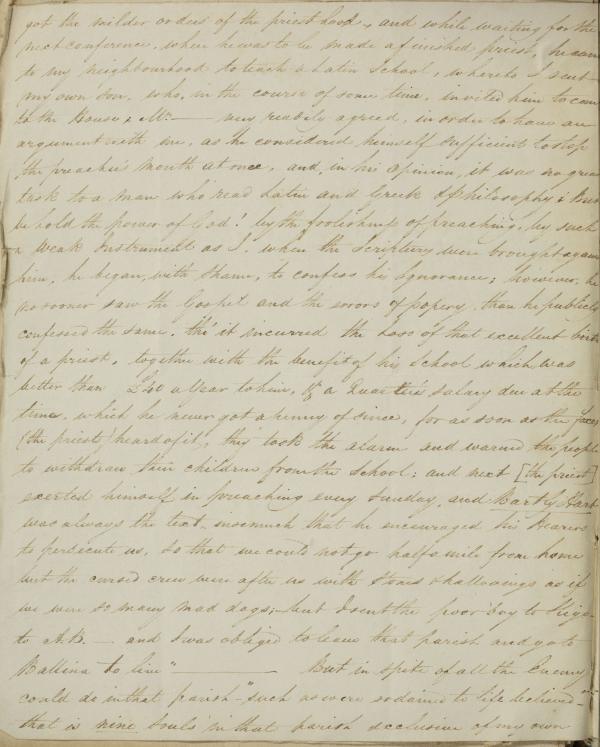 got the milder orders of the priesthood, and while waiting for the
next conference, when he was to be made a finished priest, he came
to my neighbourhood to teach a Latin School, whereto I sent
my own son, who, in the course of some time, invited him to come
to the House & Mr. —— very readily agreed, in order to have an
argument with me, as he considered himself sufficient to stop
the preacher's mouth at once, and, in his opinion, it was no great
task to a man who read Latin and Greek & Philosophy; But
behold the power of God! by the foolishness of preaching, by such
a weak instrument as I. when the Scriptures were brought against
him, he began, with shame, to confess his ignorance; however, he
no sooner saw the Gospel and the errors of popery, than he publicly
confessed the same. tho' it incurred the loss of that excellent
of a priest, together with the benefit of his School which was
better than £40 a Year to him, & a Quarter's salary due at the
time, which he never got a penny of since, for as soon as the
(the priest) heard of it, this took the alarm and warned the people
to withdraw their children from the School; and next [the priest]
exerted himself in preaching every Sunday, and Bartly Hart
was always the text, insomuch that he encouraged his Hearers
to persecute us, so that we could not go half a mile from home
but the cursed crew were after us with stones & hallooings as if
we were so many mad dogs; but I sent the poor boy to Sligo
to A.B. — and I was obliged to leave that parish and go to
Ballina to live" —— But in spite of all the Enemy
could do in that parish — "such as were ordained to life believed —"
that is nine souls in that parish exclusive of my own